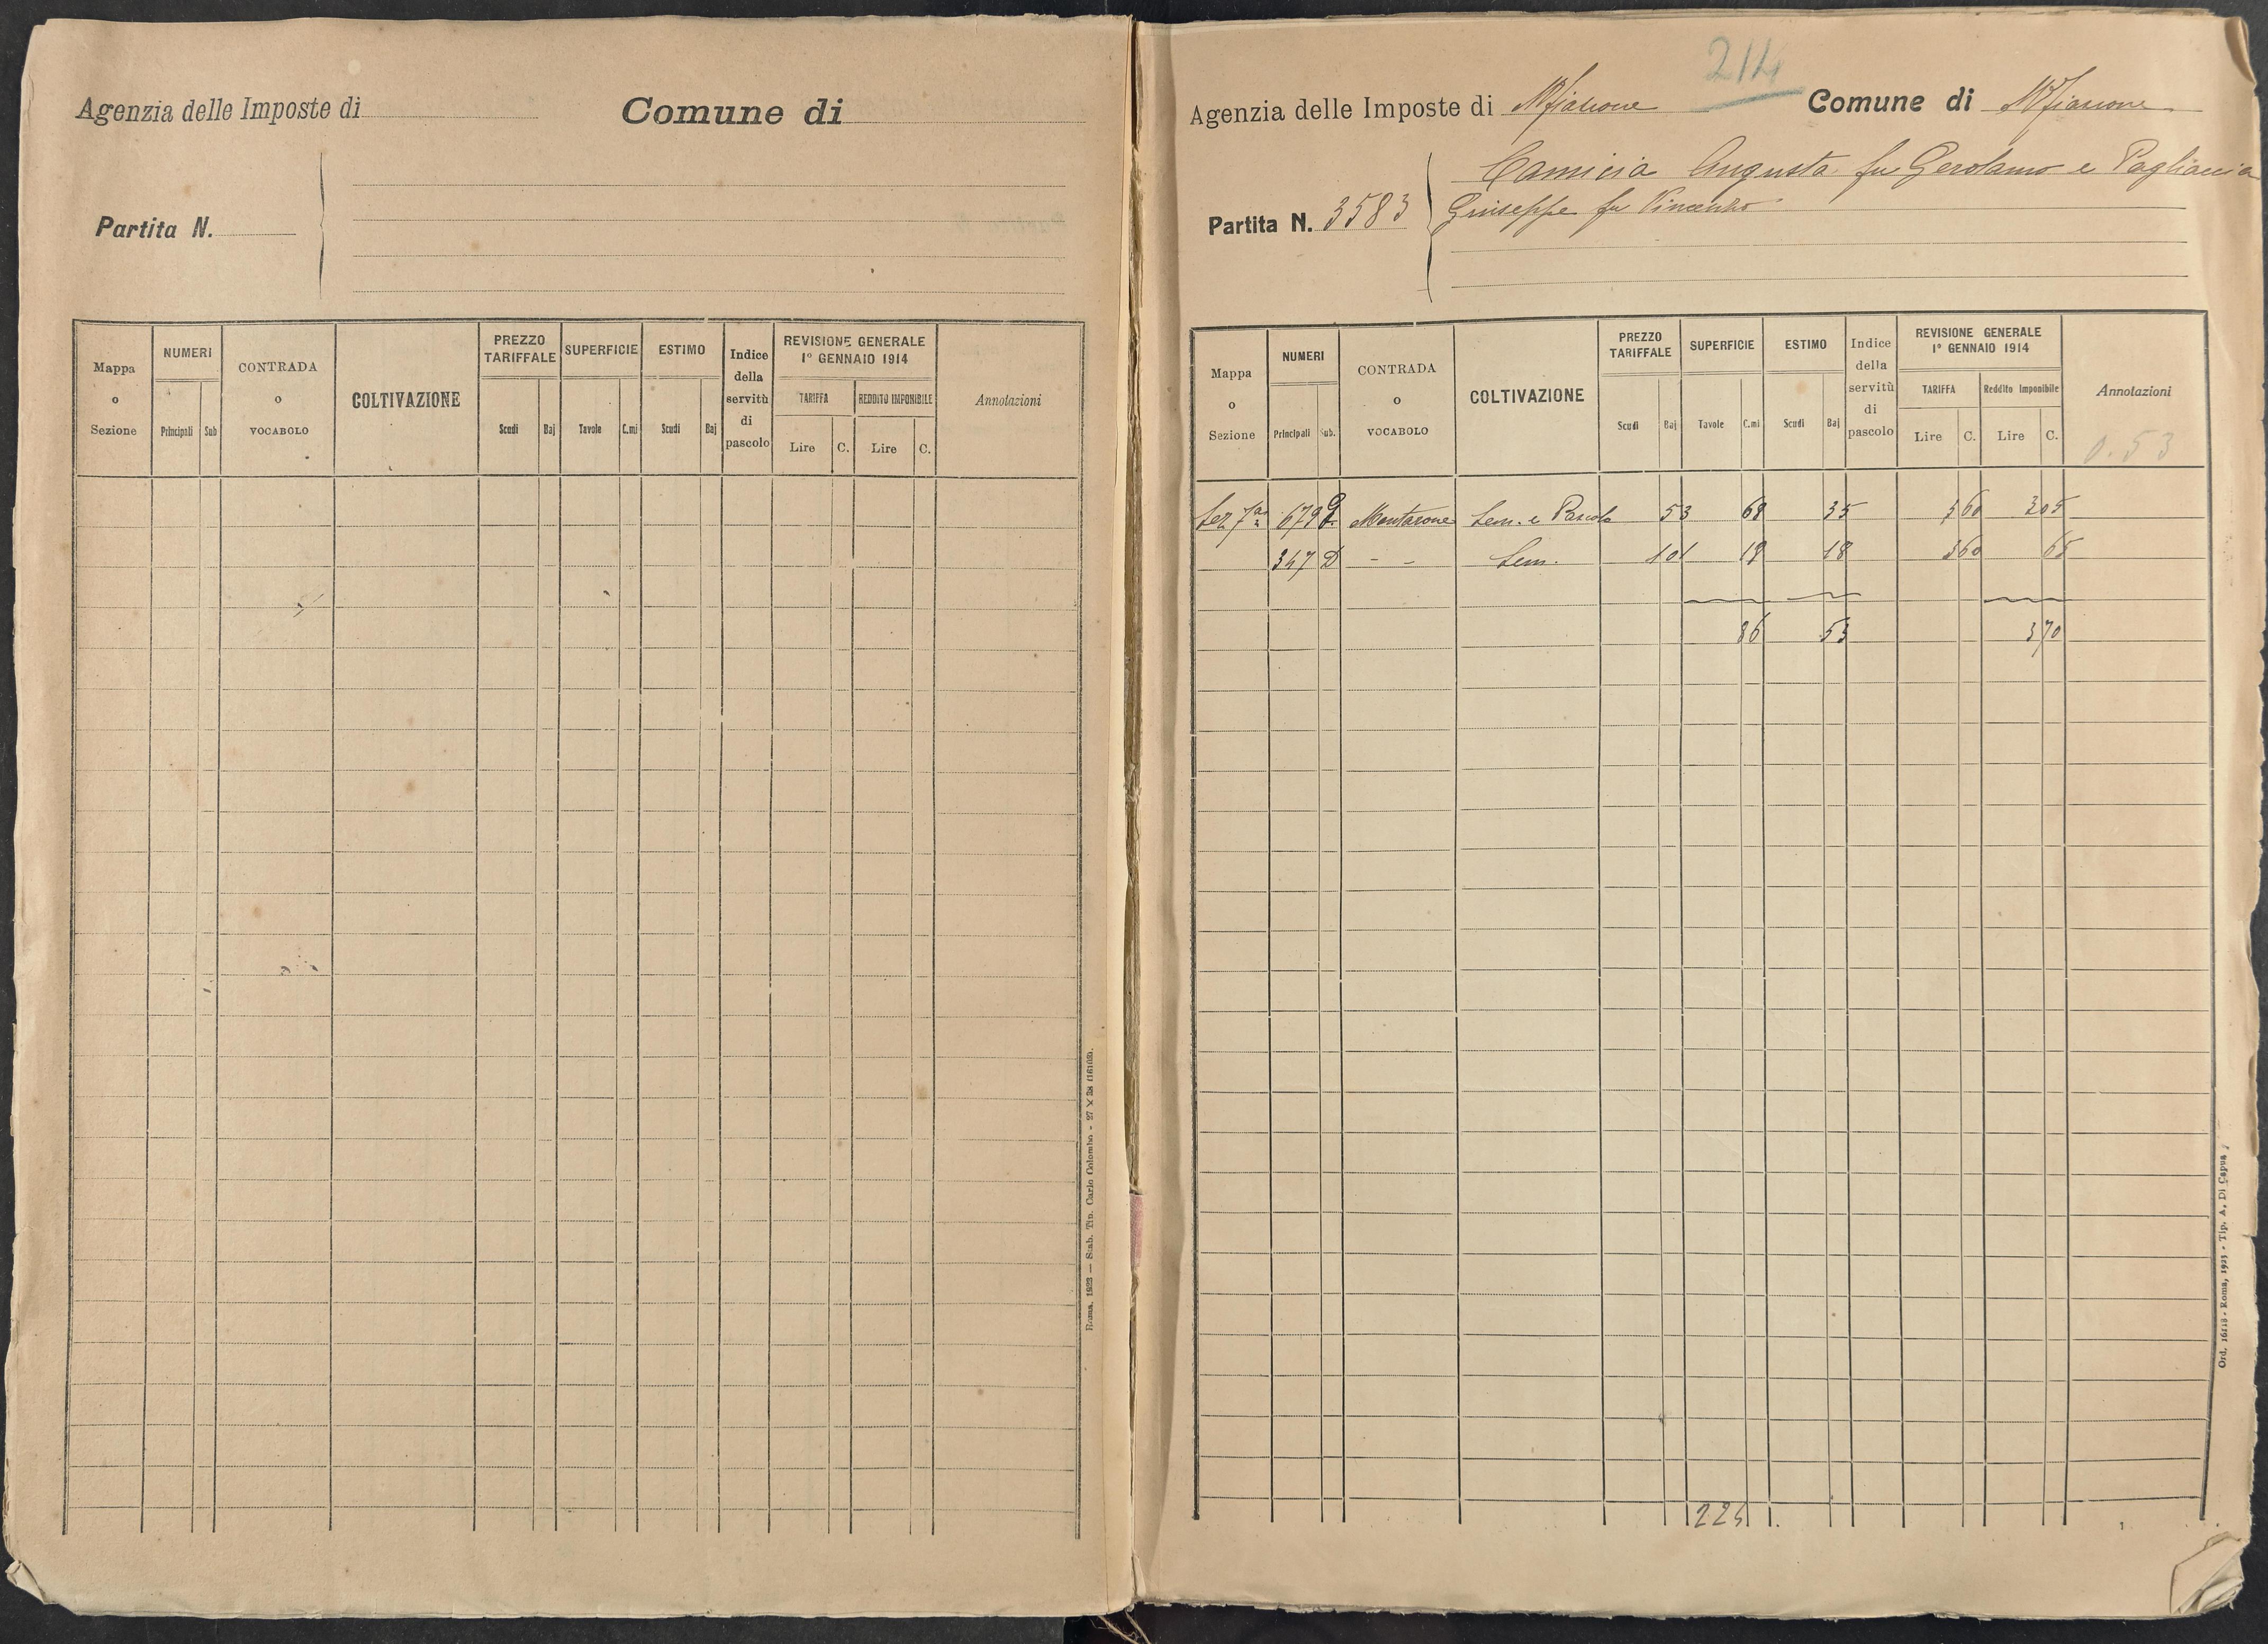 Agenzia delle Imposte di
Comune di
Partita N.
Mappa o Sezione
NUMERI
Principali Sub
CONTRADA O VOCABOLO
COLTIVAZIONE
PREZZO TARIFFALE
Scudi Baj
SUPERFICIE
Tavole C.mi
ESTIMO
Scudi Baj
Indice della servitù di pascolo
REVISIONE GENERALE
1° GENNAIO 1914
TARIFFA REDDITO IMPONIBILE
Lire C. Lire C.
Annotazioni
Roma, 1923 — Stab. Tip. Carlo Colombo - 27 × 38 (16103).
214
Agenzia delle Imposte di Mfiascone
Comune di Mfiascone
Partita N. 3583
Camicia Augusta fu Gerolamo e Pagliaccia
Giuseppe fu Vincenzo
Mappa o Sezione
NUMERI
Principali Sub.
CONTRADA O VOCABOLO
COLTIVAZIONE
PREZZO TARIFFALE
Scudi Baj
SUPERFICIE
Tavole C.mi
ESTIMO
Scudi Baj
Indice della servitù di pascolo
REVISIONE GENERALE
1° GENNAIO 1914
TARIFFA Reddito Imponibile
Lire C. Lire C.
Annotazioni
0.53
Sez 7a 679 Montarone Sem. e Pascolo 53 68 35 3 60 2 05
347 D - - Sem. 1 01 18 18 3 60 65
86 53 3 70
Ord. 16118 - Roma, 1923 - Tip. A. Di Capua